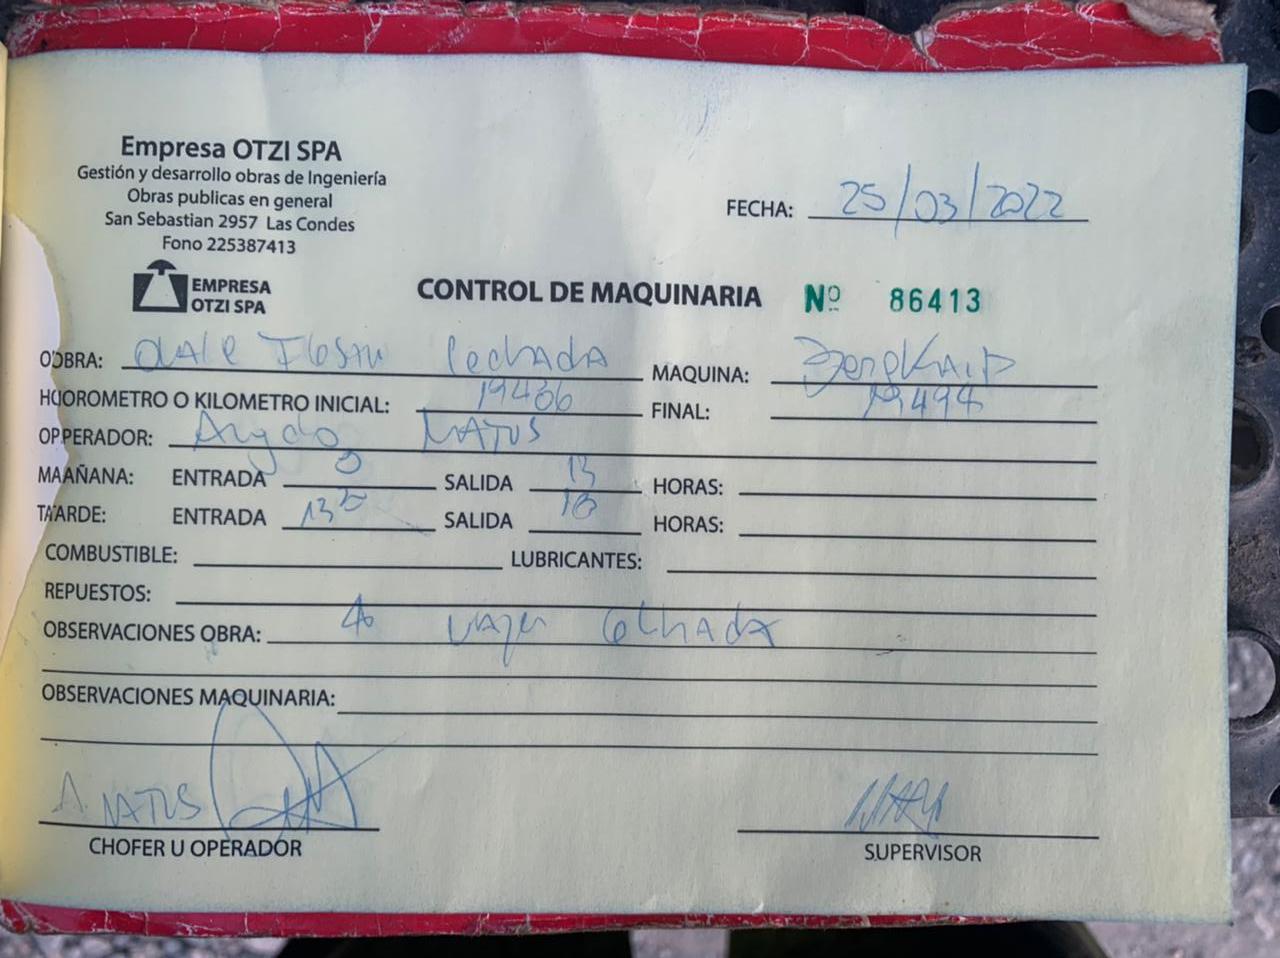 Empresa OTZI SPA
Gestión y desarrollo obras de Ingeniería
Obras publicas en general
San Sebastian 2957 Las Condes
Fono 225387413
FECHA: 25/03/2022
EMPRESA
OTZI SPA
CONTROL DE MAQUINARIA Nº 86413
OBRA: lechada MAQUINA:
HOROMETRO O KILOMETRO INICIAL: FINAL:
OPERADOR: MATUS
MAÑANA: ENTRADA 8 SALIDA 13 HORAS:
TARDE: ENTRADA SALIDA 18 HORAS:
COMBUSTIBLE: LUBRICANTES:
REPUESTOS:
OBSERVACIONES OBRA: 4
OBSERVACIONES MAQUINARIA:
A. MATUS
CHOFER U OPERADOR SUPERVISOR